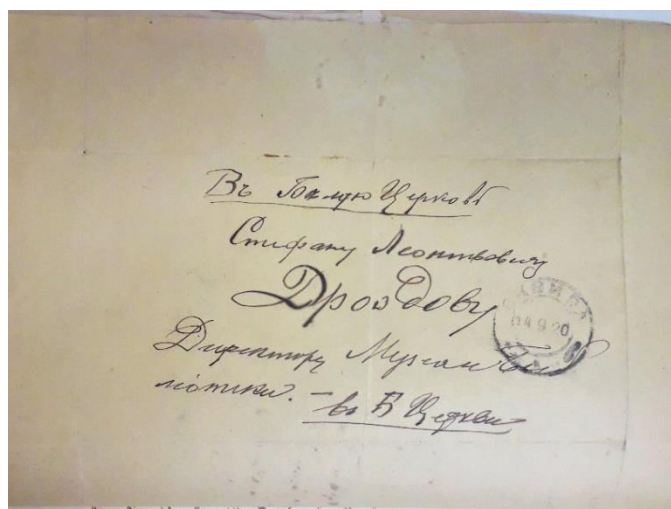 Въ Бѣлую Церковь
Стефану Леонтьевичу
Дроздову
Директору Музея и Биб
лiотеки. – въ Б Церкви
14 9 20